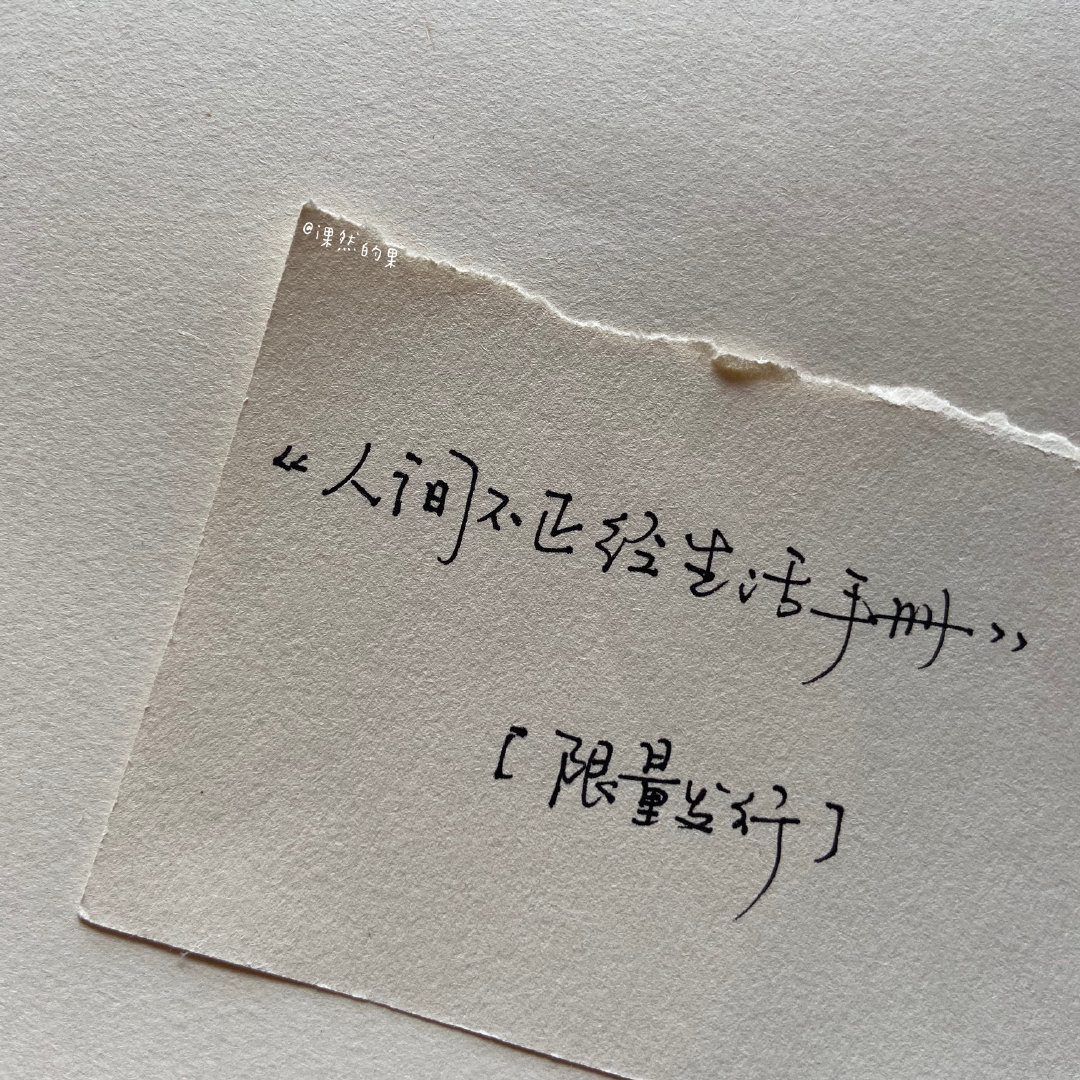 @课然的果
《人间不正经生活手册》
[限量发行]